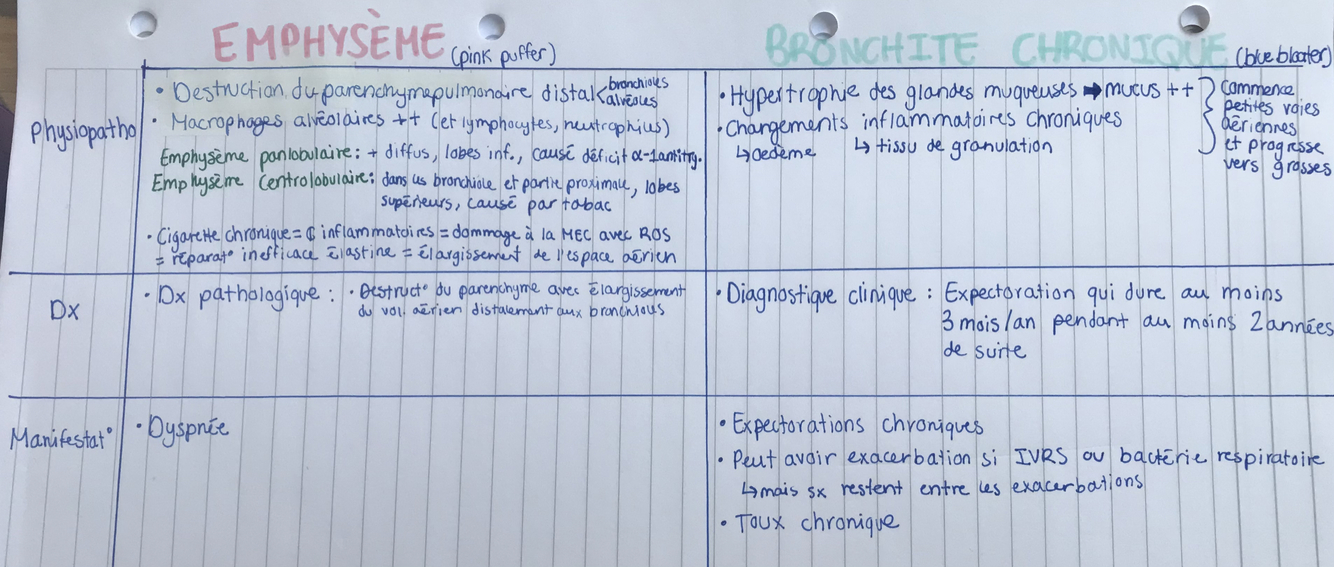 EMPHYSÈME (pink puffer)
BRONCHITE CHRONIQUE (blue bloater)
Physiopatho
• Destruction du parenchyme pulmonaire distal < bronchioles
alvéoles
• Macrophages alvéolaires ++ (et lymphocytes, neutrophiles)
Emphysème panlobulaire: + diffus, lobes inf., causé déficit α-1antitry.
Emphysème Centrolobulaire: dans les bronchiole et partie proximale, lobes
supérieurs, causé par tabac
• Cigarette chronique = ₵ inflammatoires = dommage à la MEC avec ROS
= réparat° inefficace élastine = élargissement de l'espace aérien
• Hypertrophie des glandes muqueuses ➡ mucus ++
• Changements inflammatoires chroniques
↳ oedème ↳ tissu de granulation
} Commence
petites voies
aériennes
et progresse
vers grosses
Dx
• Dx pathologique : • Destruct° du parenchyme avec élargissement
du vol. aérien distalement aux bronchioles
• Diagnostique clinique : Expectoration qui dure au moins
3 mois/an pendant au moins 2 années
de suite
Manifestat°
• Dyspnée
• Expectorations chroniques
• Peut avoir exacerbation si IVRS ou bactérie respiratoire
↳ mais sx restent entre les exacerbations
• Toux chronique